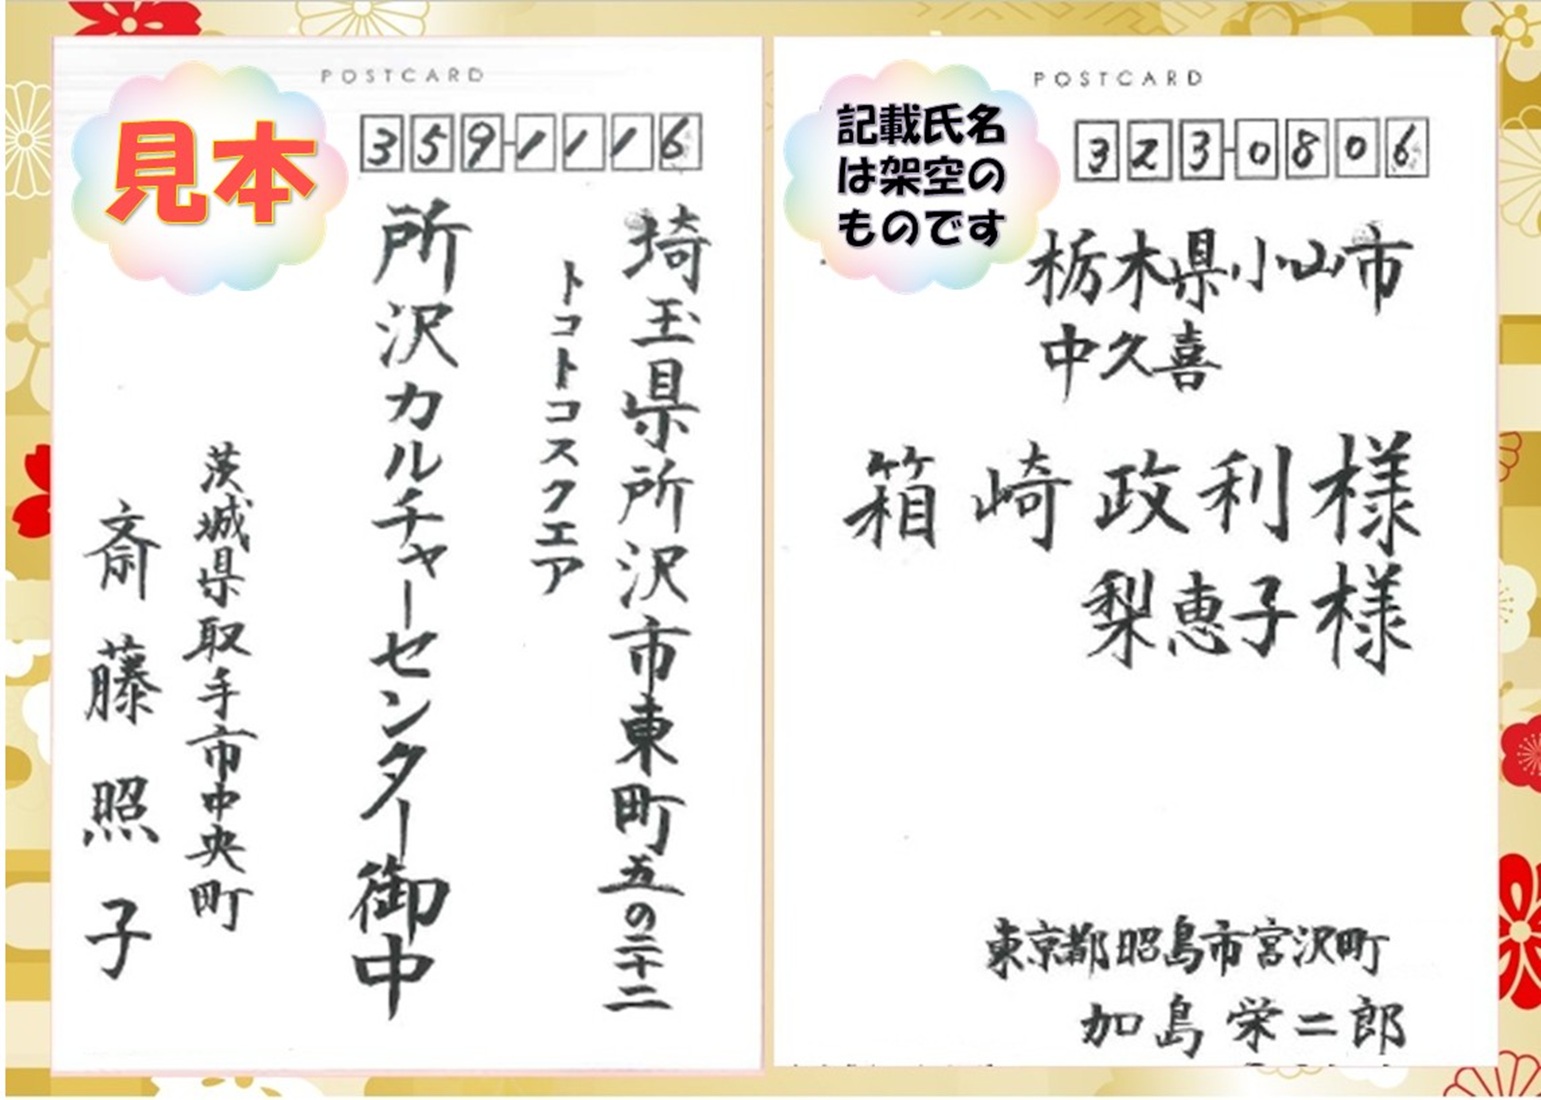 POSTCARD
見本
359-1116
埼玉県所沢市東町五の二十二
トコトコスクエア
所沢カルチャーセンター御中
茨城県取手市中央町
斎藤照子
POSTCARD
記載氏名
は架空の
ものです
323-0806
栃木県小山市
中久喜
箱崎政利様
梨恵子様
東京都昭島市宮沢町
加島栄二郎